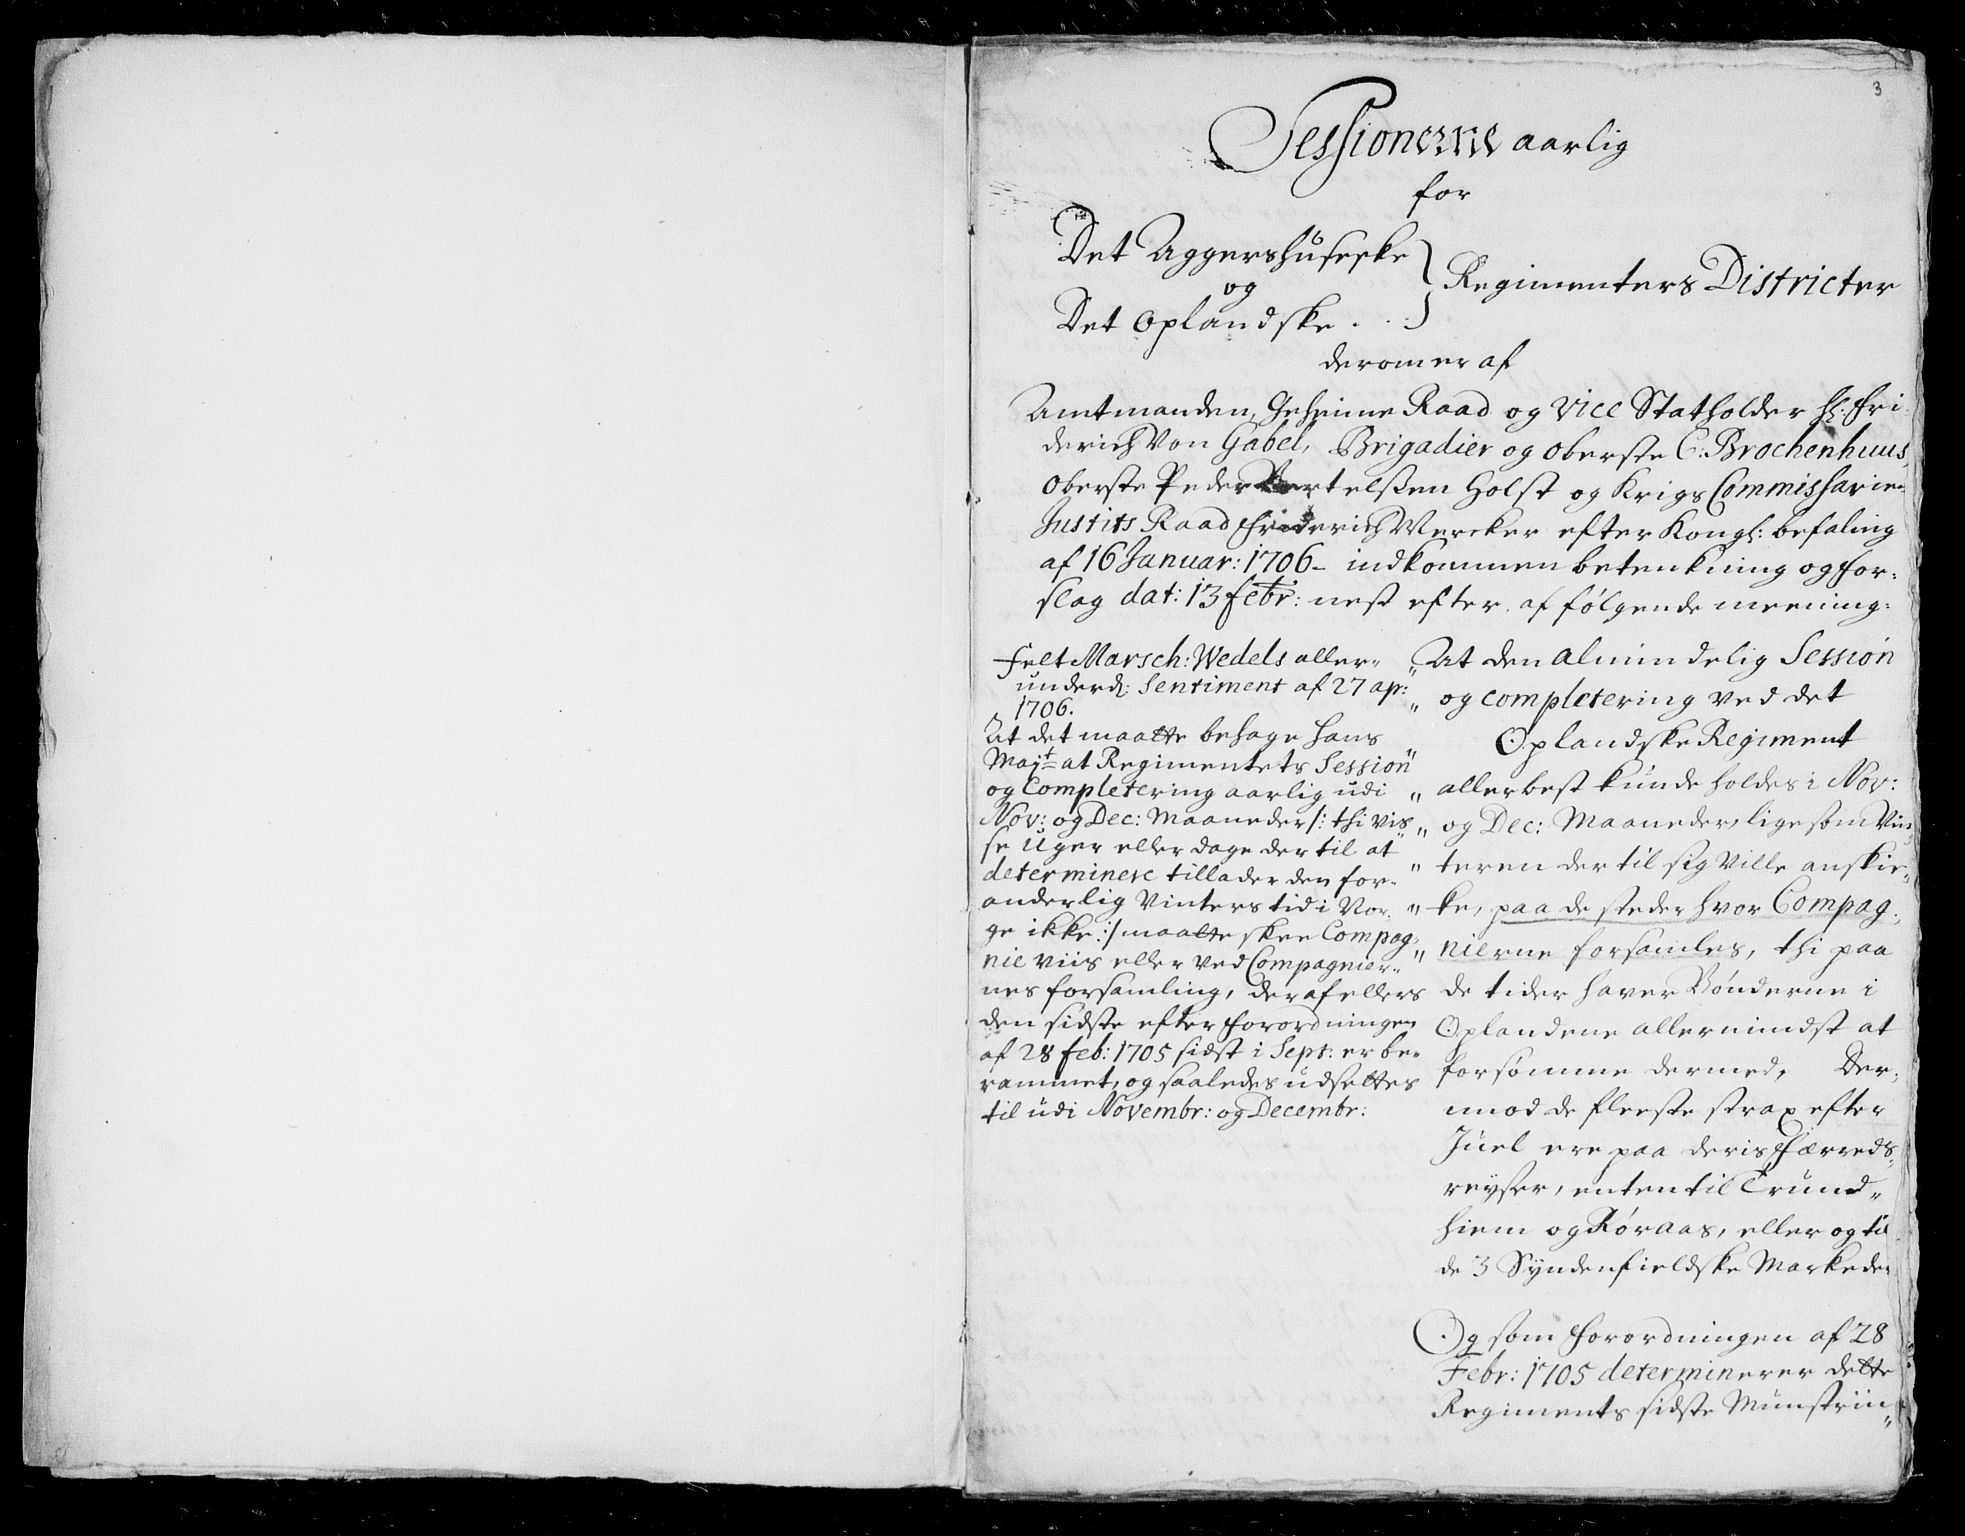 3
Sessionerne aarlig
for
Det Aggershuseske
og
Det Oplandske . . .
Regimenters Districter
derom er af
Amtmanden, Geheime Raad og Vice Statholder H: Fri-
derich Von Gabel, Brigadier og Oberste C: Brochenhuus,
Oberste Peder Bertelssen Holst og Krigs Commissarie
Justits Raad Friderich Wercker efter Kongl: befaling
af 16 Januar: 1706 – indkommen betenkning og For-
slag dat: 13 Febr: nest efter, af følgende meening:
Felt Marsch: Wedels aller-
underd: Sentiment af 27 apr:
1706.
At det maatte behage Hans
Majt at Regimentets Session
og Completering aarlig udi
Nov: og Dec: Maaneder /: thi vis
se Uger eller dage dertil at
determinere tillader den for-
anderlig Vinters tid i Nor-
ge ikke :/ maatte skee Compag-
nie viis eller ved Compagnier-
nes forsamling, der af ellers
den sidste efter Forordningen
af 28 Feb: 1705 sidst i Sept: er be-
rammet, og saaledes udsettes
til udi Novembr: og Decembr:
At den almindelig Session
og completering ved det
Oplandske Regiment
allerbest kunde holdes i Nov:
og Dec: Maaneder, lige som Vin-
teren der til sig ville anskic-
ke, paa de steder hvor Compag-
nierne forsamles, thi paa
de tider haver Bønderne i
Oplandene allermindst at
forsømme dermed, Der-
imod de fleeste strax efter
Juel ere paa deris Færreds-
reyser, enten til Trund-
hiem og Røraas, eller og til
de 3 Syndenfieldske Markeder
Og som Forordningen af 28
Febr: 1705 determinerer dette
Regiments sidste Munstrin-